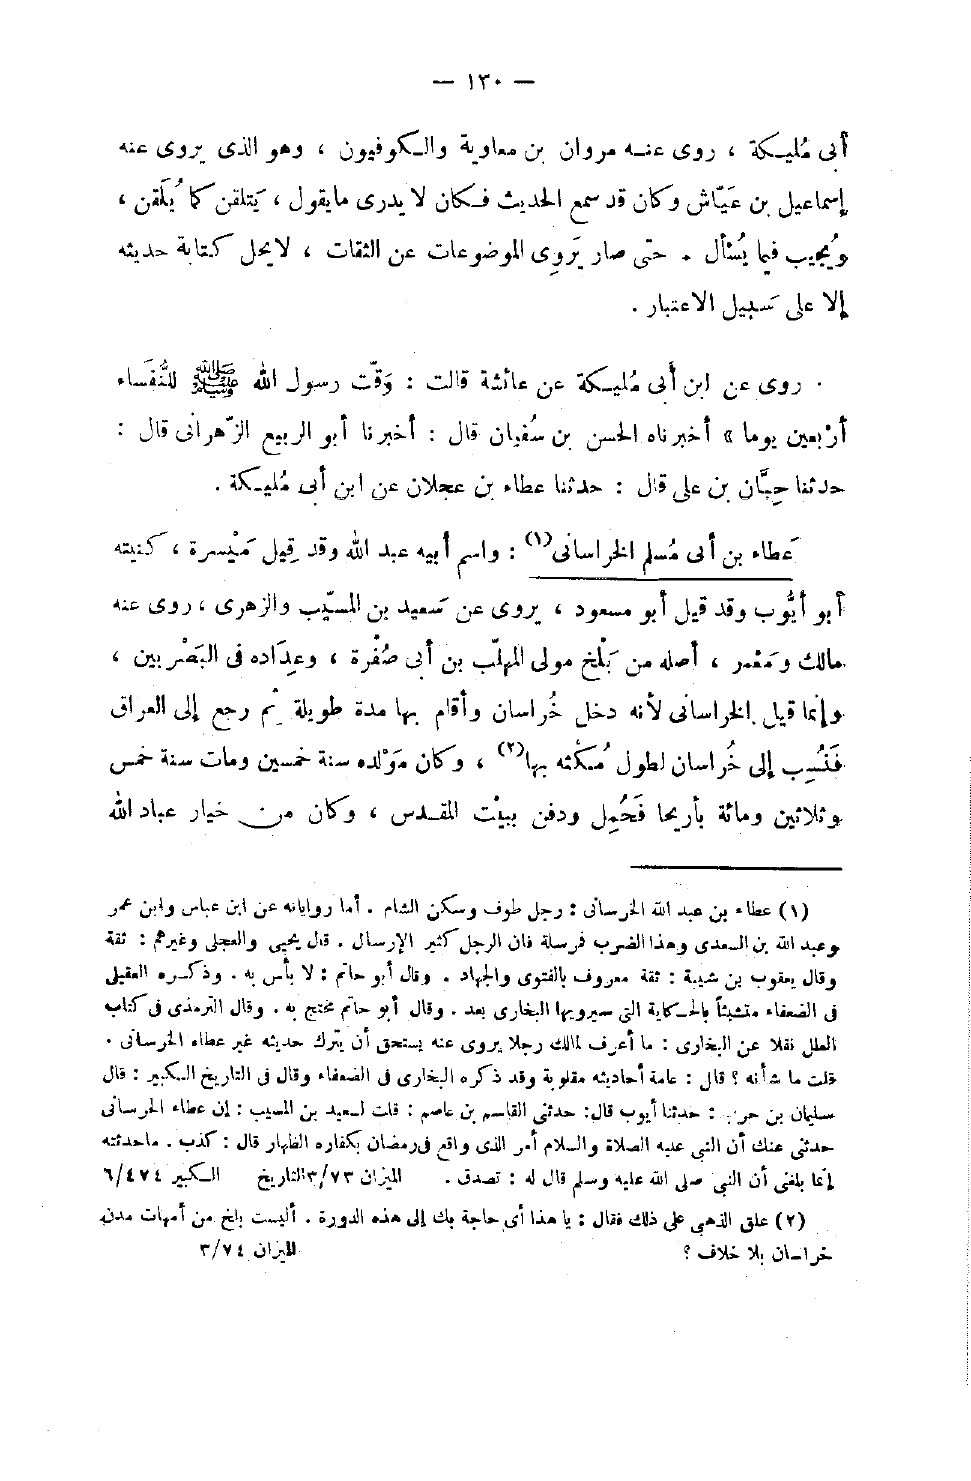 — ١٣٠ —
أبى مُليكة ، روى عنه مروان بن معاوية والكوفيون ، وهو الذى يروى عنه
إسماعيل بن عَيّاش وكان قد سمع الحديث فكان لا يدرى ما يقول ، يَتلقن كما يُلَقن ،
ويُجيب فيما يُسْأل . حتى صار يَروِى الموضوعات عن الثقات ، لا يحل كتابة حديثه
إلا على سَبيل الاعتبار .
. روى عن ابن أبى مُليكة عن عائشة قالت : وَقّت رسول الله ﷺ للنُّفَساء
أرْبعين يوما » أخبرناه الحسن بن سُفيان قال : أخبرنا أبو الربيع الزّهرانى قال :
حدثنا حِبَّان بن على قال : حدثنا عطاء بن عجلان عن ابن أبى مُليكة .
عَطاء بن أبى مُسلم الخراسانى(١) : واسم أبيه عبد الله وقد قِيل مَيْسرة ، كنيته
أبو أيُّوب وقد قيل أبو مسعود ، يروى عن سَعيد بن المسيّب والزهرى ، روى عنه
مالك ومَعْمر ، أصله من بَلْخ مولى المهلّب بن أبى صُفْرة ، وعِدَاده فى البَصْريين ،
وإنما قيل الخراسانى لأنه دخل خُراسان وأقام بها مدة طويلة ثم رجع إلى العراق
فَنُسِب إلى خُراسان لطول مُكْثه بها(٢) ، وكان مَوْلده سنة خمسين ومات سنة خمس
وثلاثين ومائة بأريحا فَحُمِل ودفن ببيْت المقدس ، وكان من خيار عباد الله
(١) عطاء بن عبد الله الخرسانى : رجل طوف وسكن الشام . أما رواياته عن ابن عباس وابن عمر
وعبد الله بن السعدى وهذا الضرب فمرسلة فان الرجل كثير الإرسال . قال يحيى والعجلى وغيرهم : ثقة
وقال يعقوب بن شيبة : ثقة معروف بالفتوى والجهاد . وقال أبو حاتم : لا بأس به . وذكره العقيلى
فى الضعفاء متشبثاً بالحكاية التى سيرويها البخارى بعد . وقال أبو حاتم محتج به . وقال الترمذى فى كتاب
العلل نقلا عن البخارى : ما أعرف لمالك رجلا يروى عنه يستحق أن يترك حديثه غير عطاء الخرسانى .
قلت ما شأنه ؟ قال : عامة أحاديثه مقلوبة وقد ذكره البخارى فى الضعفاء وقال فى التاريخ الكبير : قال
سليمان بن حرب : حدثنا أيوب قال: حدثنى القاسم بن عاصم : قلت لسعيد بن المسيب : إن عطاء الخرسانى
حدثنى عنك أن النبى عليه الصلاة والسلام أمر الذى واقع فى رمضان بكفاره الظهار قال : كذب . ما حدثته
إنما بلغنى أن النبى صلى الله عليه وسلم قال له : تصدق . الميزان ٣/٧٣ التاريخ الكبير ٦/٤٧٤
(٢) علق الذهبى على ذلك فقال : يا هذا أى حاجة بك إلى هذه الدورة . أليست بلخ من أمهات مدن
خراسان بلا خلاف ؟ الميزان ٣/٧٤